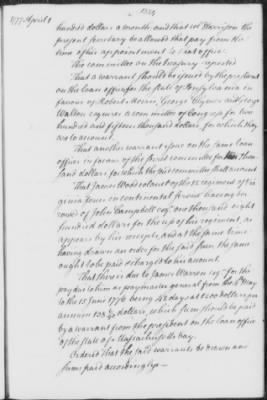 1777 April 9
hundred dollars a month, and that col Harrison the
present secretary be allowed that pay from the
time of his appointment to that office.
The committee on the treasury reported
That a warrant should be issued by the president
on the loan office for the state of Pensylvania in
favour of Robert Morris, George Clymer and George
Walton esquires a committee of Congress for two
hundred and fifteen thousand dollars for which they
are to account.
That another warrant issue on the same loan
office in favour of the secret committee for thou
sand dollars for which the said committee shall account
That James Wood colonel of the regiment of Vir
ginia forces on continental service having re
ceived of John Campbell esqr one thousand eight
hundred dollars for the use of his regiment, as
appears by his receipt, and at the same time
having drawn no order for the said sum the same
ought to be paid & charged to his account.
That there is due to James Warren esqr for the
pay due to him as paymaster general from the day
to the 1st June 1776 being days at 1200 dollars per
annum 138 dollars, which sum should be paid
by a warrant from the president on the loan office
of the state of Massachusetts bay.
Ordered that the said warrants be drawn and
sums paid accordingly —